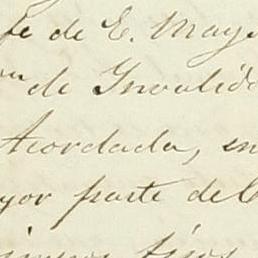 fe de E. Mayo
de Invalido
Acordada, en
yor parte del